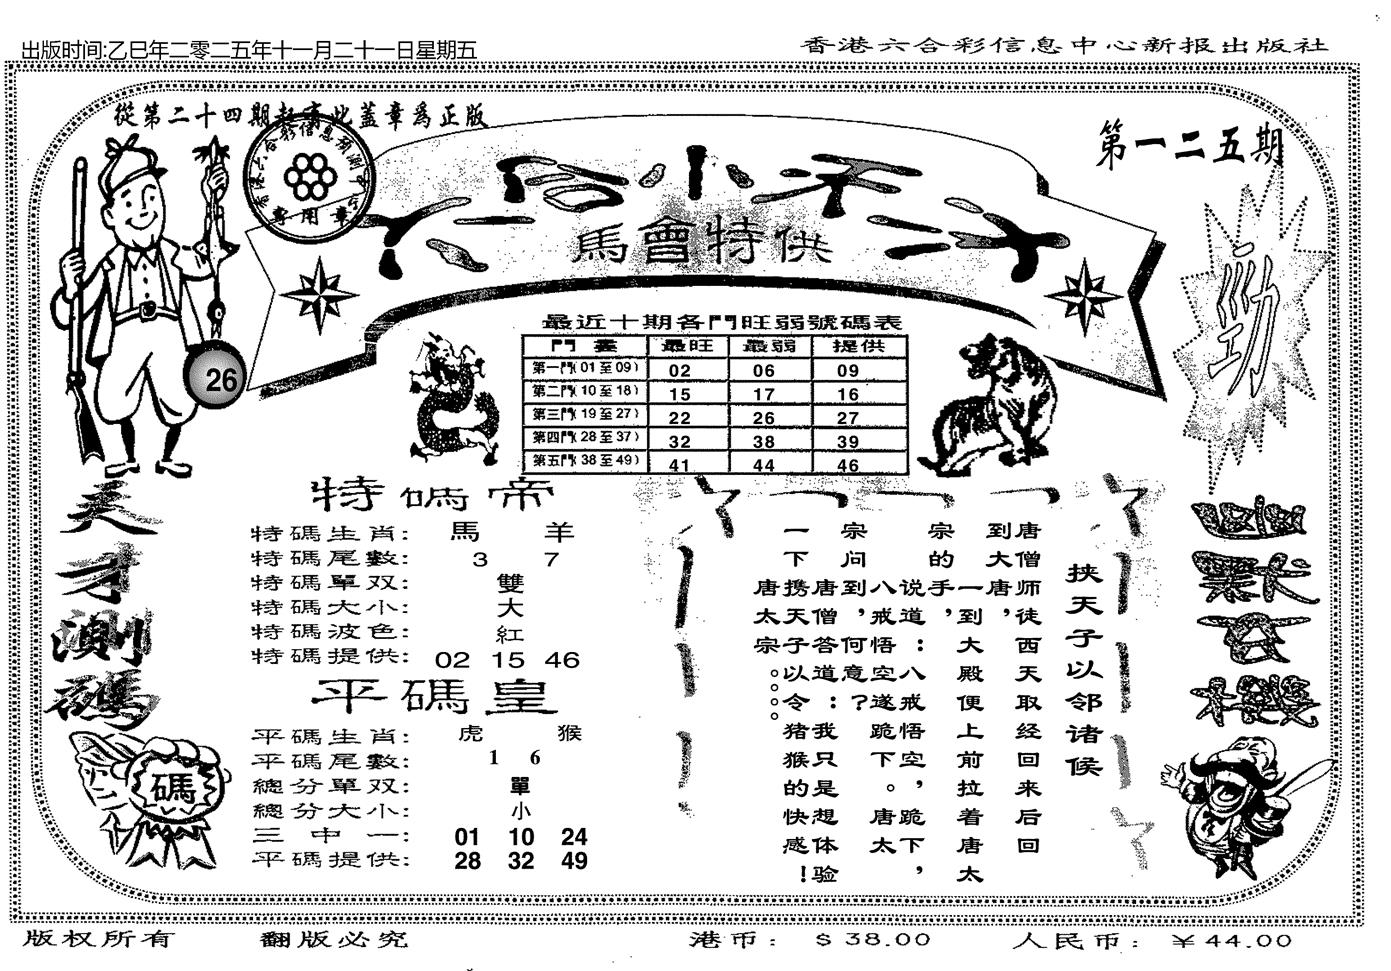 出版时间:乙巳年二零二五年十一月二十一日星期五
香港六合彩信息中心新报出版社
從第二十四期起有此蓋章爲正版
香港六合彩信息預測中心
專用章
第一二五期
馬會特供
勁
26
最近十期各門旺弱號碼表
門 最旺 最弱 提供
第一門(01至09) 02 06 09
第二門(10至18) 15 17 16
第三門(19至27) 22 26 27
第四門(28至37) 32 38 39
第五門(38至49) 41 44 46
天才測碼
碼
特碼帝
特碼生肖: 馬 羊
特碼尾數: 3 7
特碼單双: 雙
特碼大小: 大
特碼波色: 紅
特碼提供: 02 15 46
平碼皇
平碼生肖: 虎 猴
平碼尾數: 1 6
總分單双: 單
總分大小: 小
三中一: 01 10 24
平碼提供: 28 32 49
挟天子以邻诸候
唐僧师徒西天取经回来后回
到大唐，
一到大殿便上前拉着唐太
宗的手，
说道：八戒悟空，跪下，
八戒悟空遂跪下。唐太
宗问到，何意？
唐僧答道：我只是想体验
一下携天子以令猪猴的快感！
唐太宗。。。。
版权所有 翻版必究 港币：$38.00 人民币：￥44.00